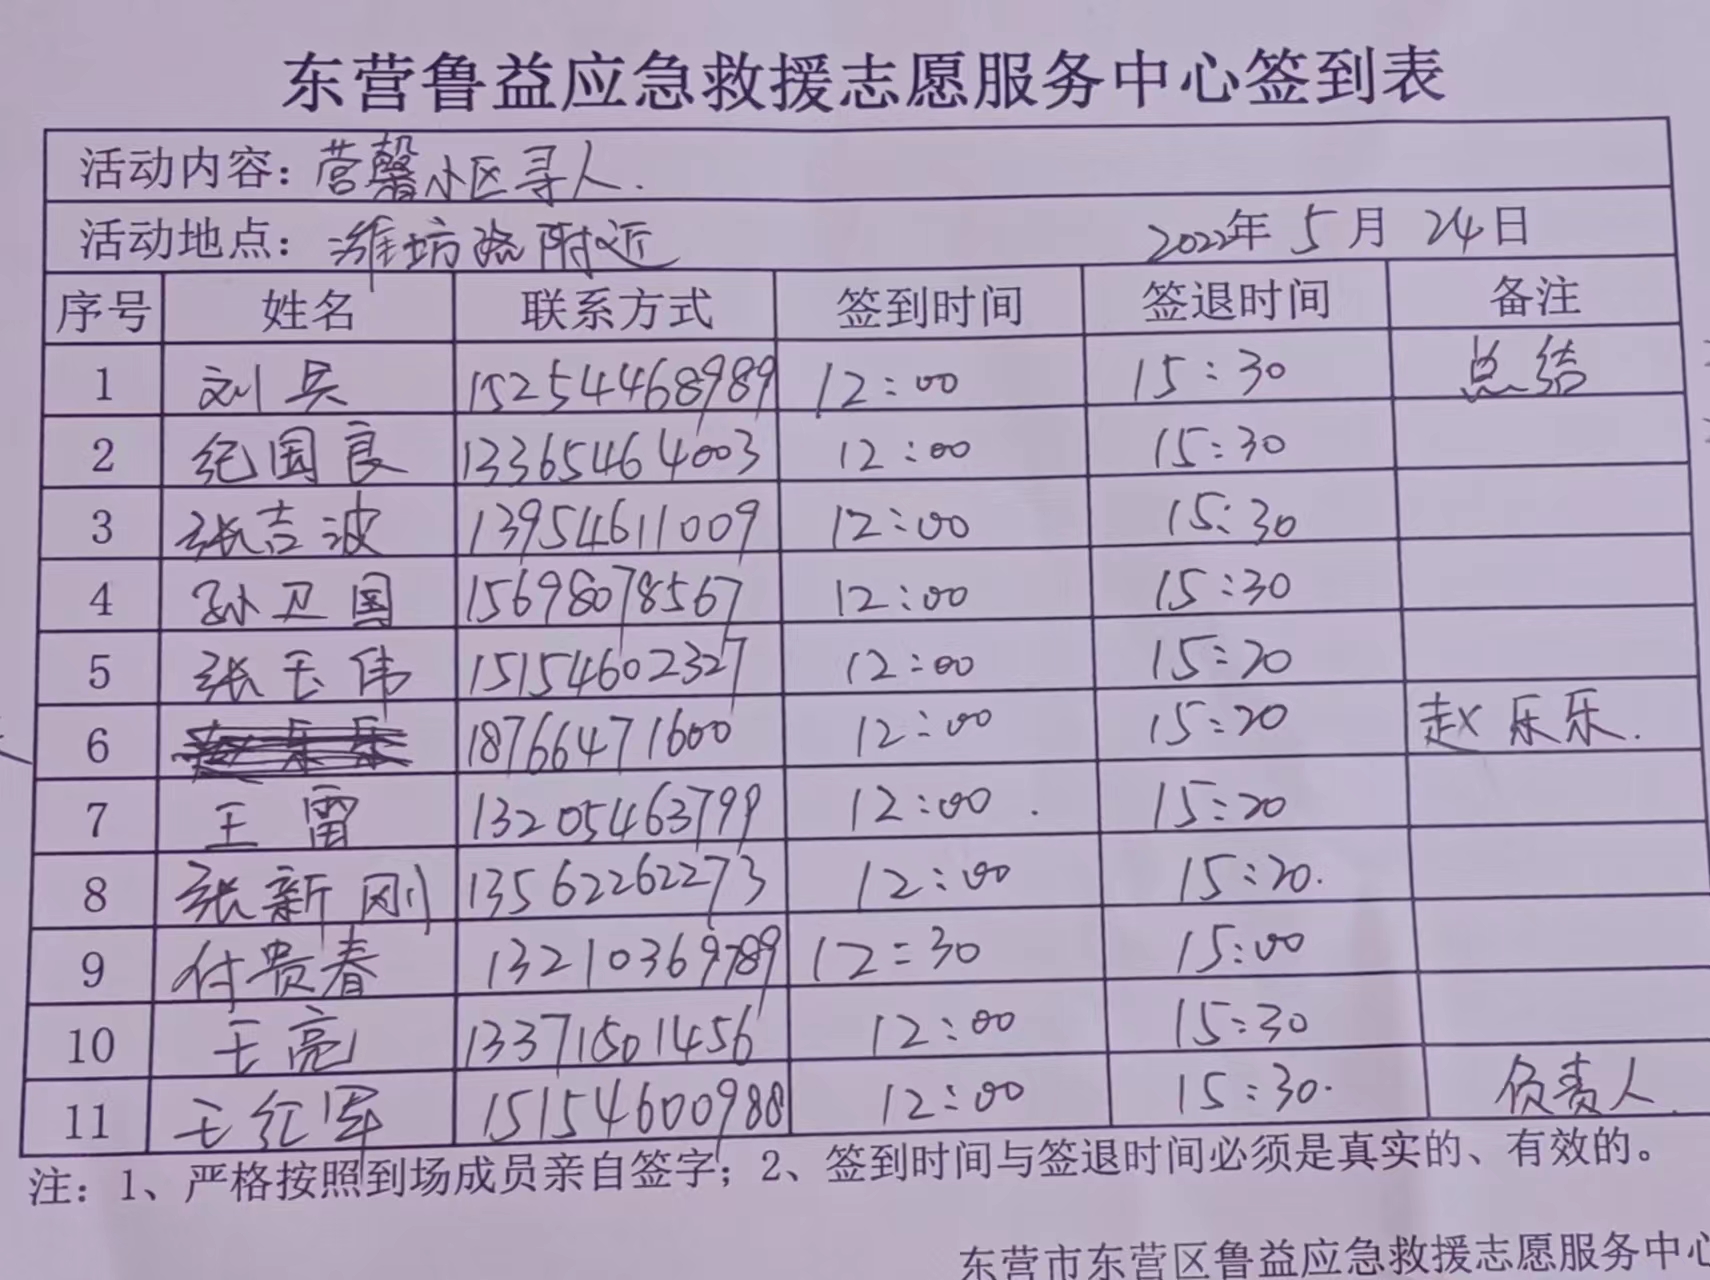 东营鲁益应急救援志愿服务中心签到表
活动内容：营馨小区寻人.
活动地点：潍坊路附近 2022年5月24日
序号 姓名 联系方式 签到时间 签退时间 备注
1 刘兵 15254468989 12:00 15:30 总结
2 纪国良 13365464003 12:00 15:30
3 张吉波 13954611009 12:00 15:30
4 孙卫国 15698078567 12:00 15:30
5 张玉伟 15154602327 12:00 15:20
6 赵乐乐 18766471600 12:00 15:20 赵乐乐.
7 王雷 13205463799 12:00 15:20
8 张新刚 13562262273 12:00 15:20.
9 付贵春 13210369789 12:30 15:00
10 王亮 13371501456 12:00 15:30
11 王红军 15154600988 12:00 15:30. 负责人.
注：1、严格按照到场成员亲自签字；2、签到时间与签退时间必须是真实的、有效的。
东营市东营区鲁益应急救援志愿服务中心